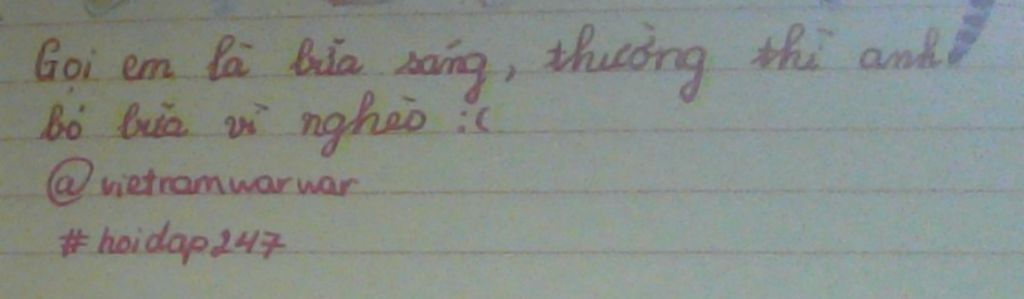 Gọi em là bữa sáng, thường thì anh
bỏ bữa vì nghèo :(
@vietnamwarwar
#hoidap247